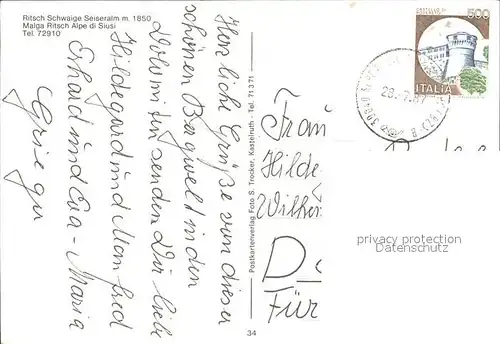 Ritsch Schwaige Seiseralm m. 1850
Malga Ritsch Alpe di Siusi
Tel. 72910
Herzliche Grüße von dieser
schönen Bergwelt in den
Dolomiten senden Dir liebe
Hildegard und Manfred
Erhard und Eva-Maria
Postkartenverlag Foto S. Trocker, Kastelruth - Tel. 71371
34
CASTELLO DI
ROVERETO
500
ITALIA
Frau
Hilde
Wilhel
D
Für
privacy protection
Datenschutz